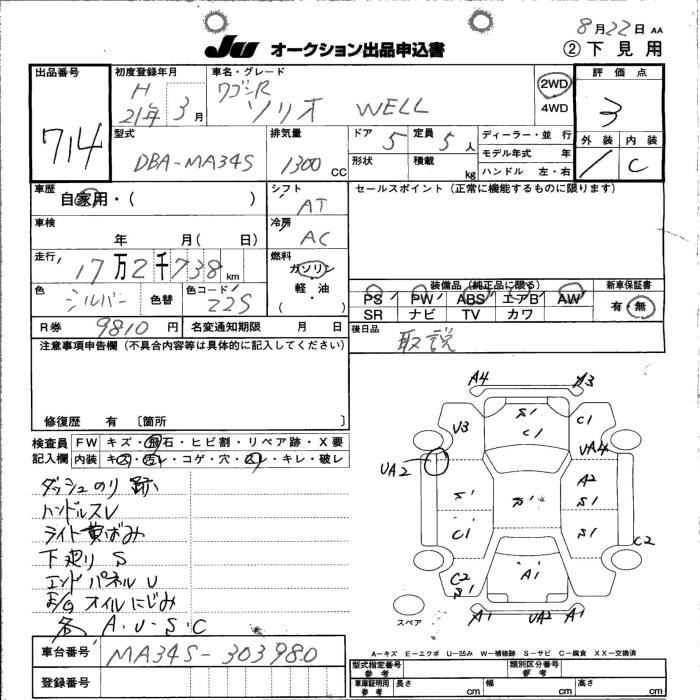 8月22日 AA
JU オークション出品申込書 ②下見用
出品番号 714
初度登録年月 H 21年 3月
車名・グレード ワゴンR ソリオ WELL
2WD
4WD
評価点 3
外装 内装 C
型式 DBA-MA34S
排気量 1300 CC
ドア 5 定員 5人
形状 積載 kg
ディーラー・並行
モデル年式 年
ハンドル 左・右
車歴 自家用・( )
シフト AT
セールスポイント(正常に機能するものに限ります)
車検 年 月( 日)
冷房 AC
走行 17万2千738km
燃料 ガソリン・軽油・( )
色 シルバー 色替 色コード Z2S
装備品(純正品に限る) 新車保証書
PS PW ABS エアB AW 有・無
SR ナビ TV カワ
R券 9810円 名変通知期限 月 日
後日品 取説
注意事項申告欄(不具合内容等は具体的に記入してください)
修復歴 有 〔箇所 〕
検査員 FW キズ・飛石・ヒビ割・リペア跡・X要
記入欄 内装 キズ・汚レ・コゲ・穴・スレ・キレ・破レ
ダッシュのり跡
ハンドルスレ
ライト黄ばみ
下廻り S
エンドパネルU
E/G オイルにじみ
各 A・U・S・C
A4 A3
S1
V3 C1 C1
UA4
UA2
A2
S1 S1 S1
C1 S1
C2
C2 A1
S1
A1 UA2 A1
スペア
A−キズ E−エクボ U−凹み W−補修跡 S−サビ C−腐食 XX−交換済
車台番号 MA34S-303980
登録番号
型式指定番号 参考 類別区分番号
車庫証明用 参考 長さ cm 幅 cm 高さ cm